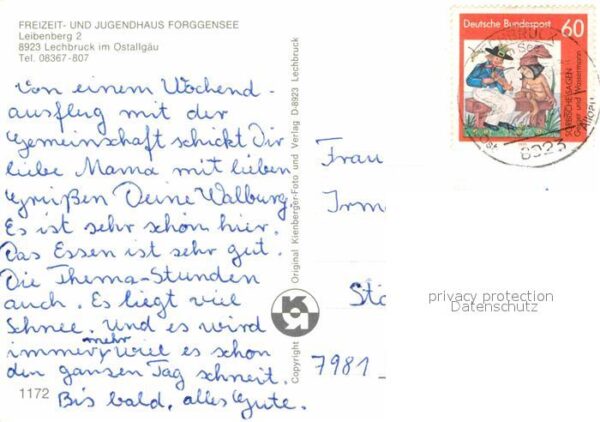 FREIZEIT- UND JUGENDHAUS FORGGENSEE
Leibenberg 2
8923 Lechbruck im Ostallgäu
Tel. 08367-807
Von einem Wochend-
ausflug mit der
Gemeinschaft schickt Dir
liebe Mama mit lieben
Grüßen Deine Walburg.
Es ist sehr schön hier.
Das Essen ist sehr gut.
Die Thema-Stunden
auch. Es liegt viel
Schnee. Und es wird
immer mehr, weil es schon
den ganzen Tag schneit.
Bis bald, alles Gute.
1172
Copyright Original Kienberger-Foto und Verlag D-8923 Lechbruck
Deutsche Bundespost 60
SORBISCHE SAGEN
Geiger und Wassermann
8923
Frau
Irm
Stö
7981
privacy protection
Datenschutz